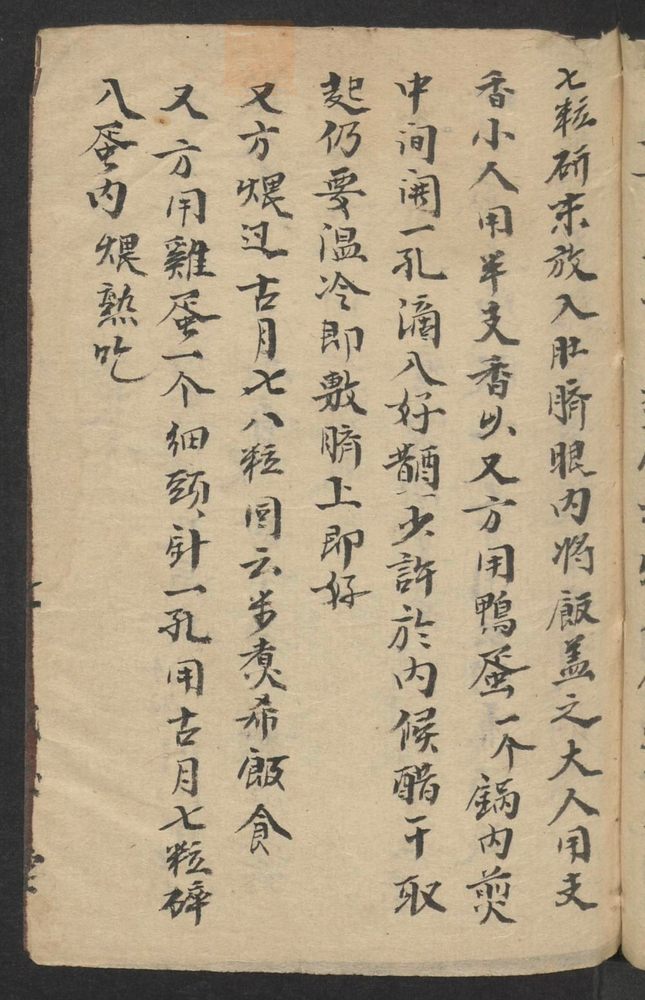 七粒研末放入肚臍眼内将飯盖之大人用支
香小人用半支香以又方用鴨蛋一个鍋内煎
中间開一孔滴入好醋少許於内候醋干取
起仍要温冷即敷臍上即好
又方煨过古月七八粒同云米煑希飯食
又方用雞蛋一个细頭針一孔用古月七粒碎
入蛋内煨熟吃